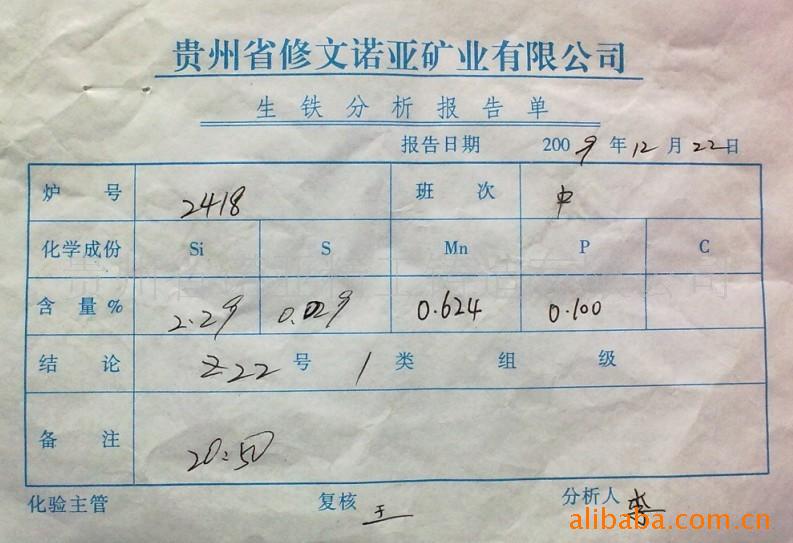 贵州省修文诺亚矿业有限公司
生铁分析报告单
报告日期 2009年12月22日
炉号 2418 班次 中
化学成份 Si S Mn P C
含量% 2.29 0.029 0.624 0.100
结论 Z22号 1类组级
备注 20:50
化验主管 复核 分析人
alibaba.com.cn